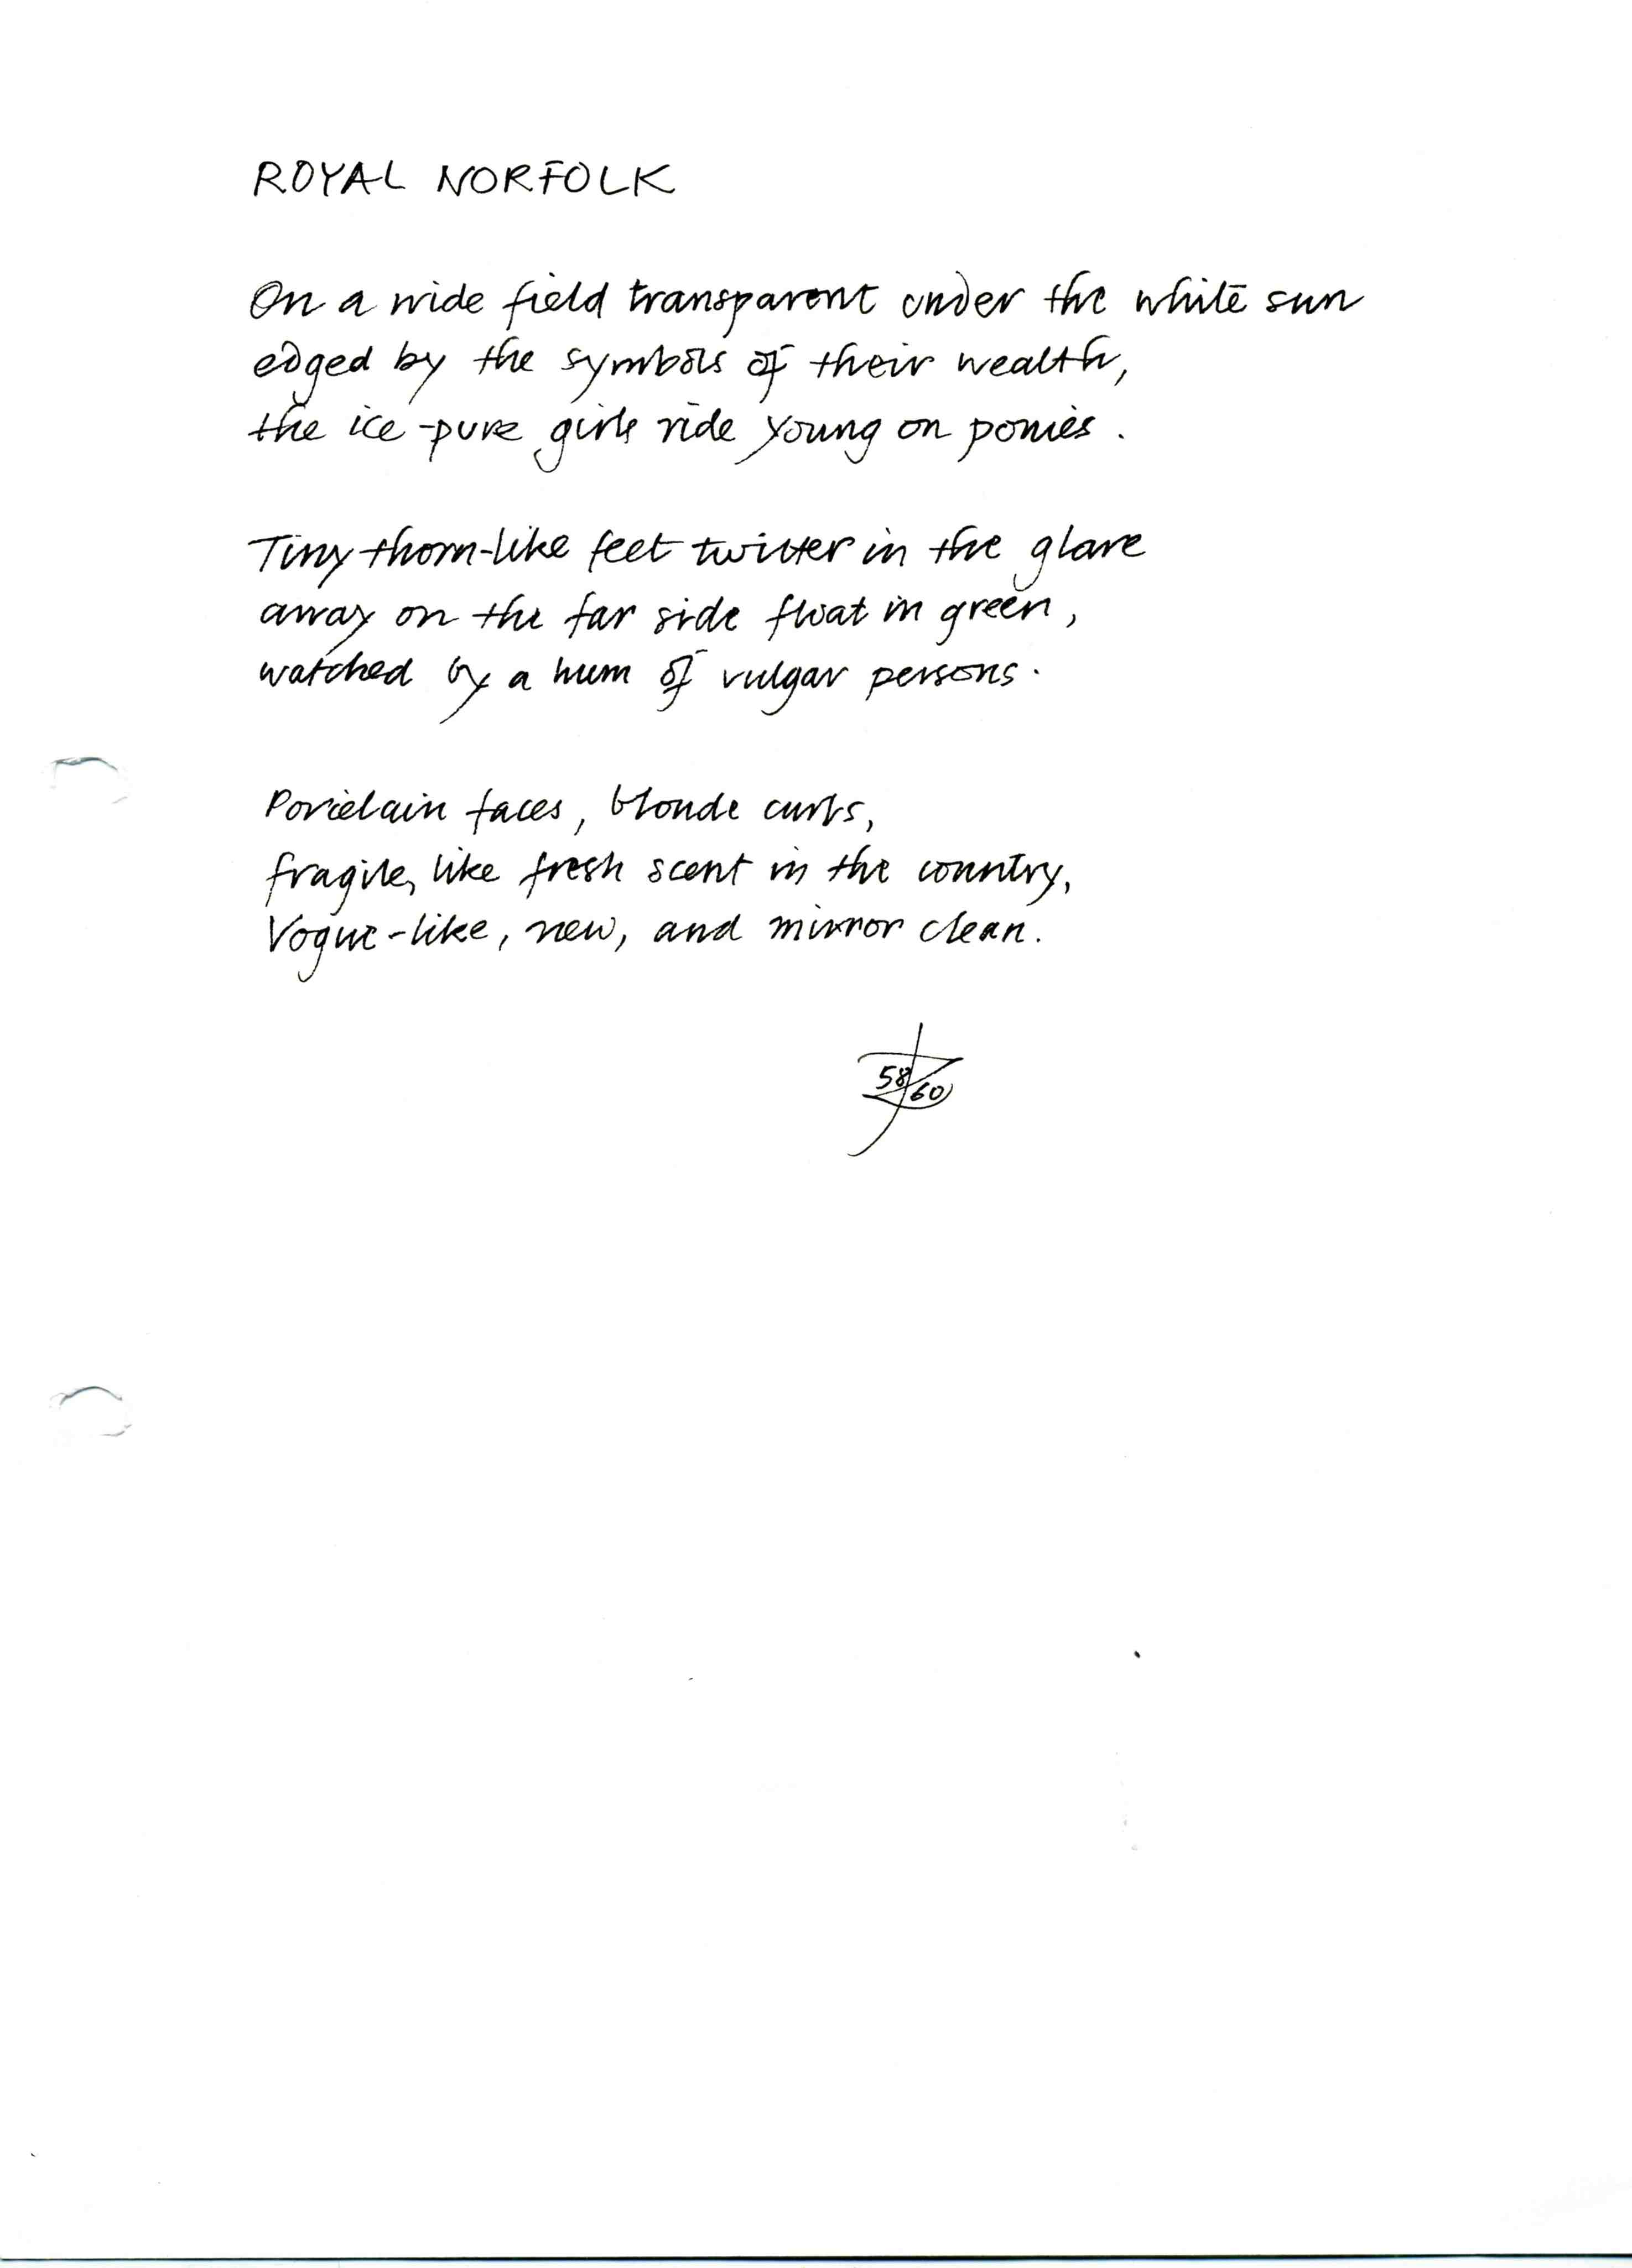 ROYAL NORFOLK
On a wide field transparent under the white sun
edged by the symbols of their wealth,
the ice-pure girls ride young on ponies.
Tiny thorn-like feet twitter in the glare
away on the far side float in green,
watched by a hum of vulgar persons.
Porcelain faces, blonde curls,
fragile, like fresh scent in the country,
Vogue-like, new, and mirror clean.
58/60